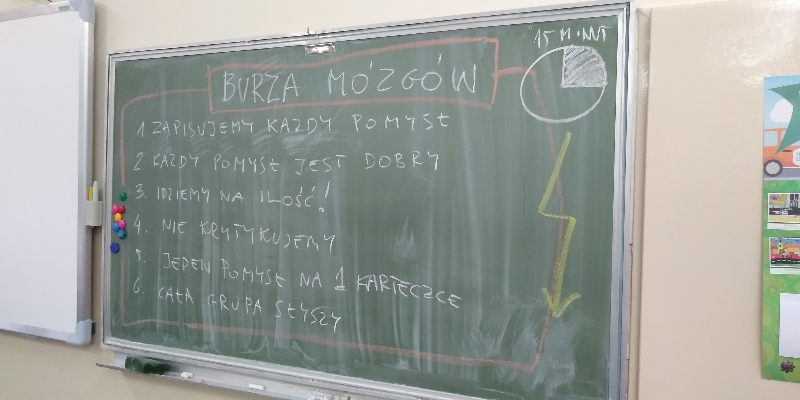 15 MINUT
BURZA MÓZGÓW
1 ZAPISUJEMY KAŻDY POMYSŁ
2 KAŻDY POMYSŁ JEST DOBRY
3. IDZIEMY NA ILOŚĆ!
4. NIE KRYTYKUJEMY
5. JEDEN POMYSŁ NA 1 KARTECZCE
6. CAŁA GRUPA SŁYSZY